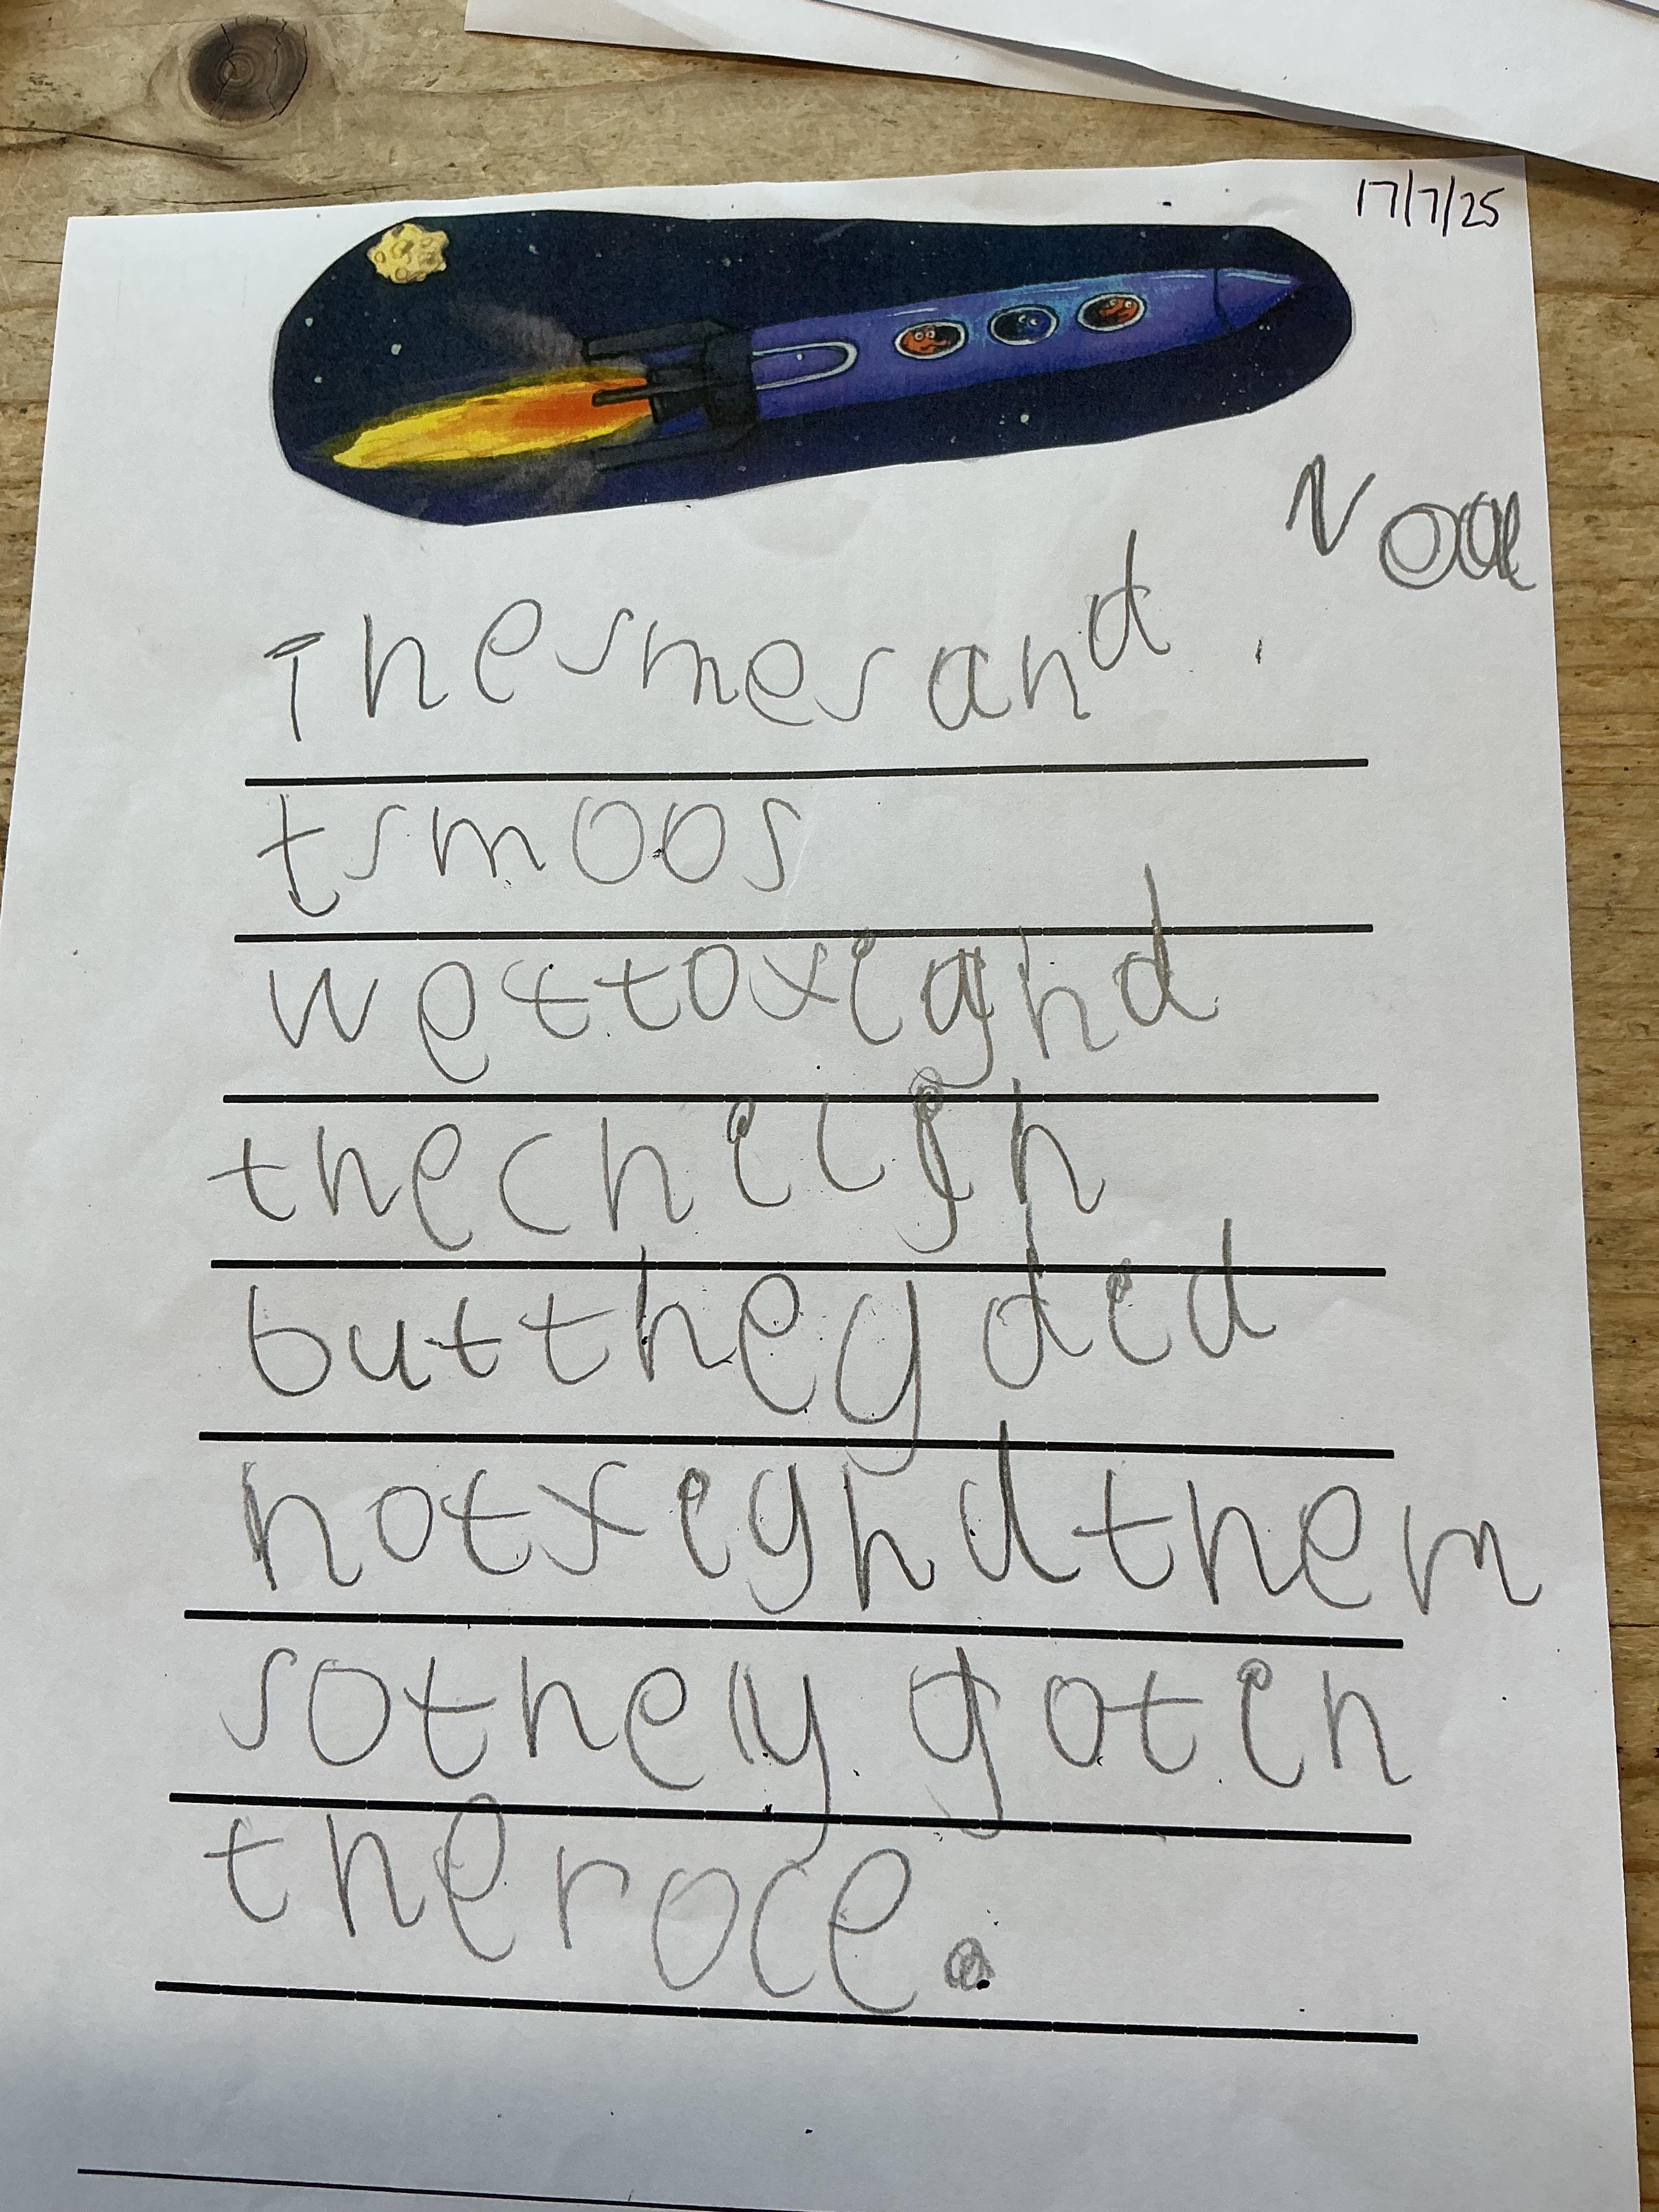 17/7/25
Noa
The smes and
t smoos
wet to xighd
the chiligh
but they did
not xighd them
so they got in
the roce.